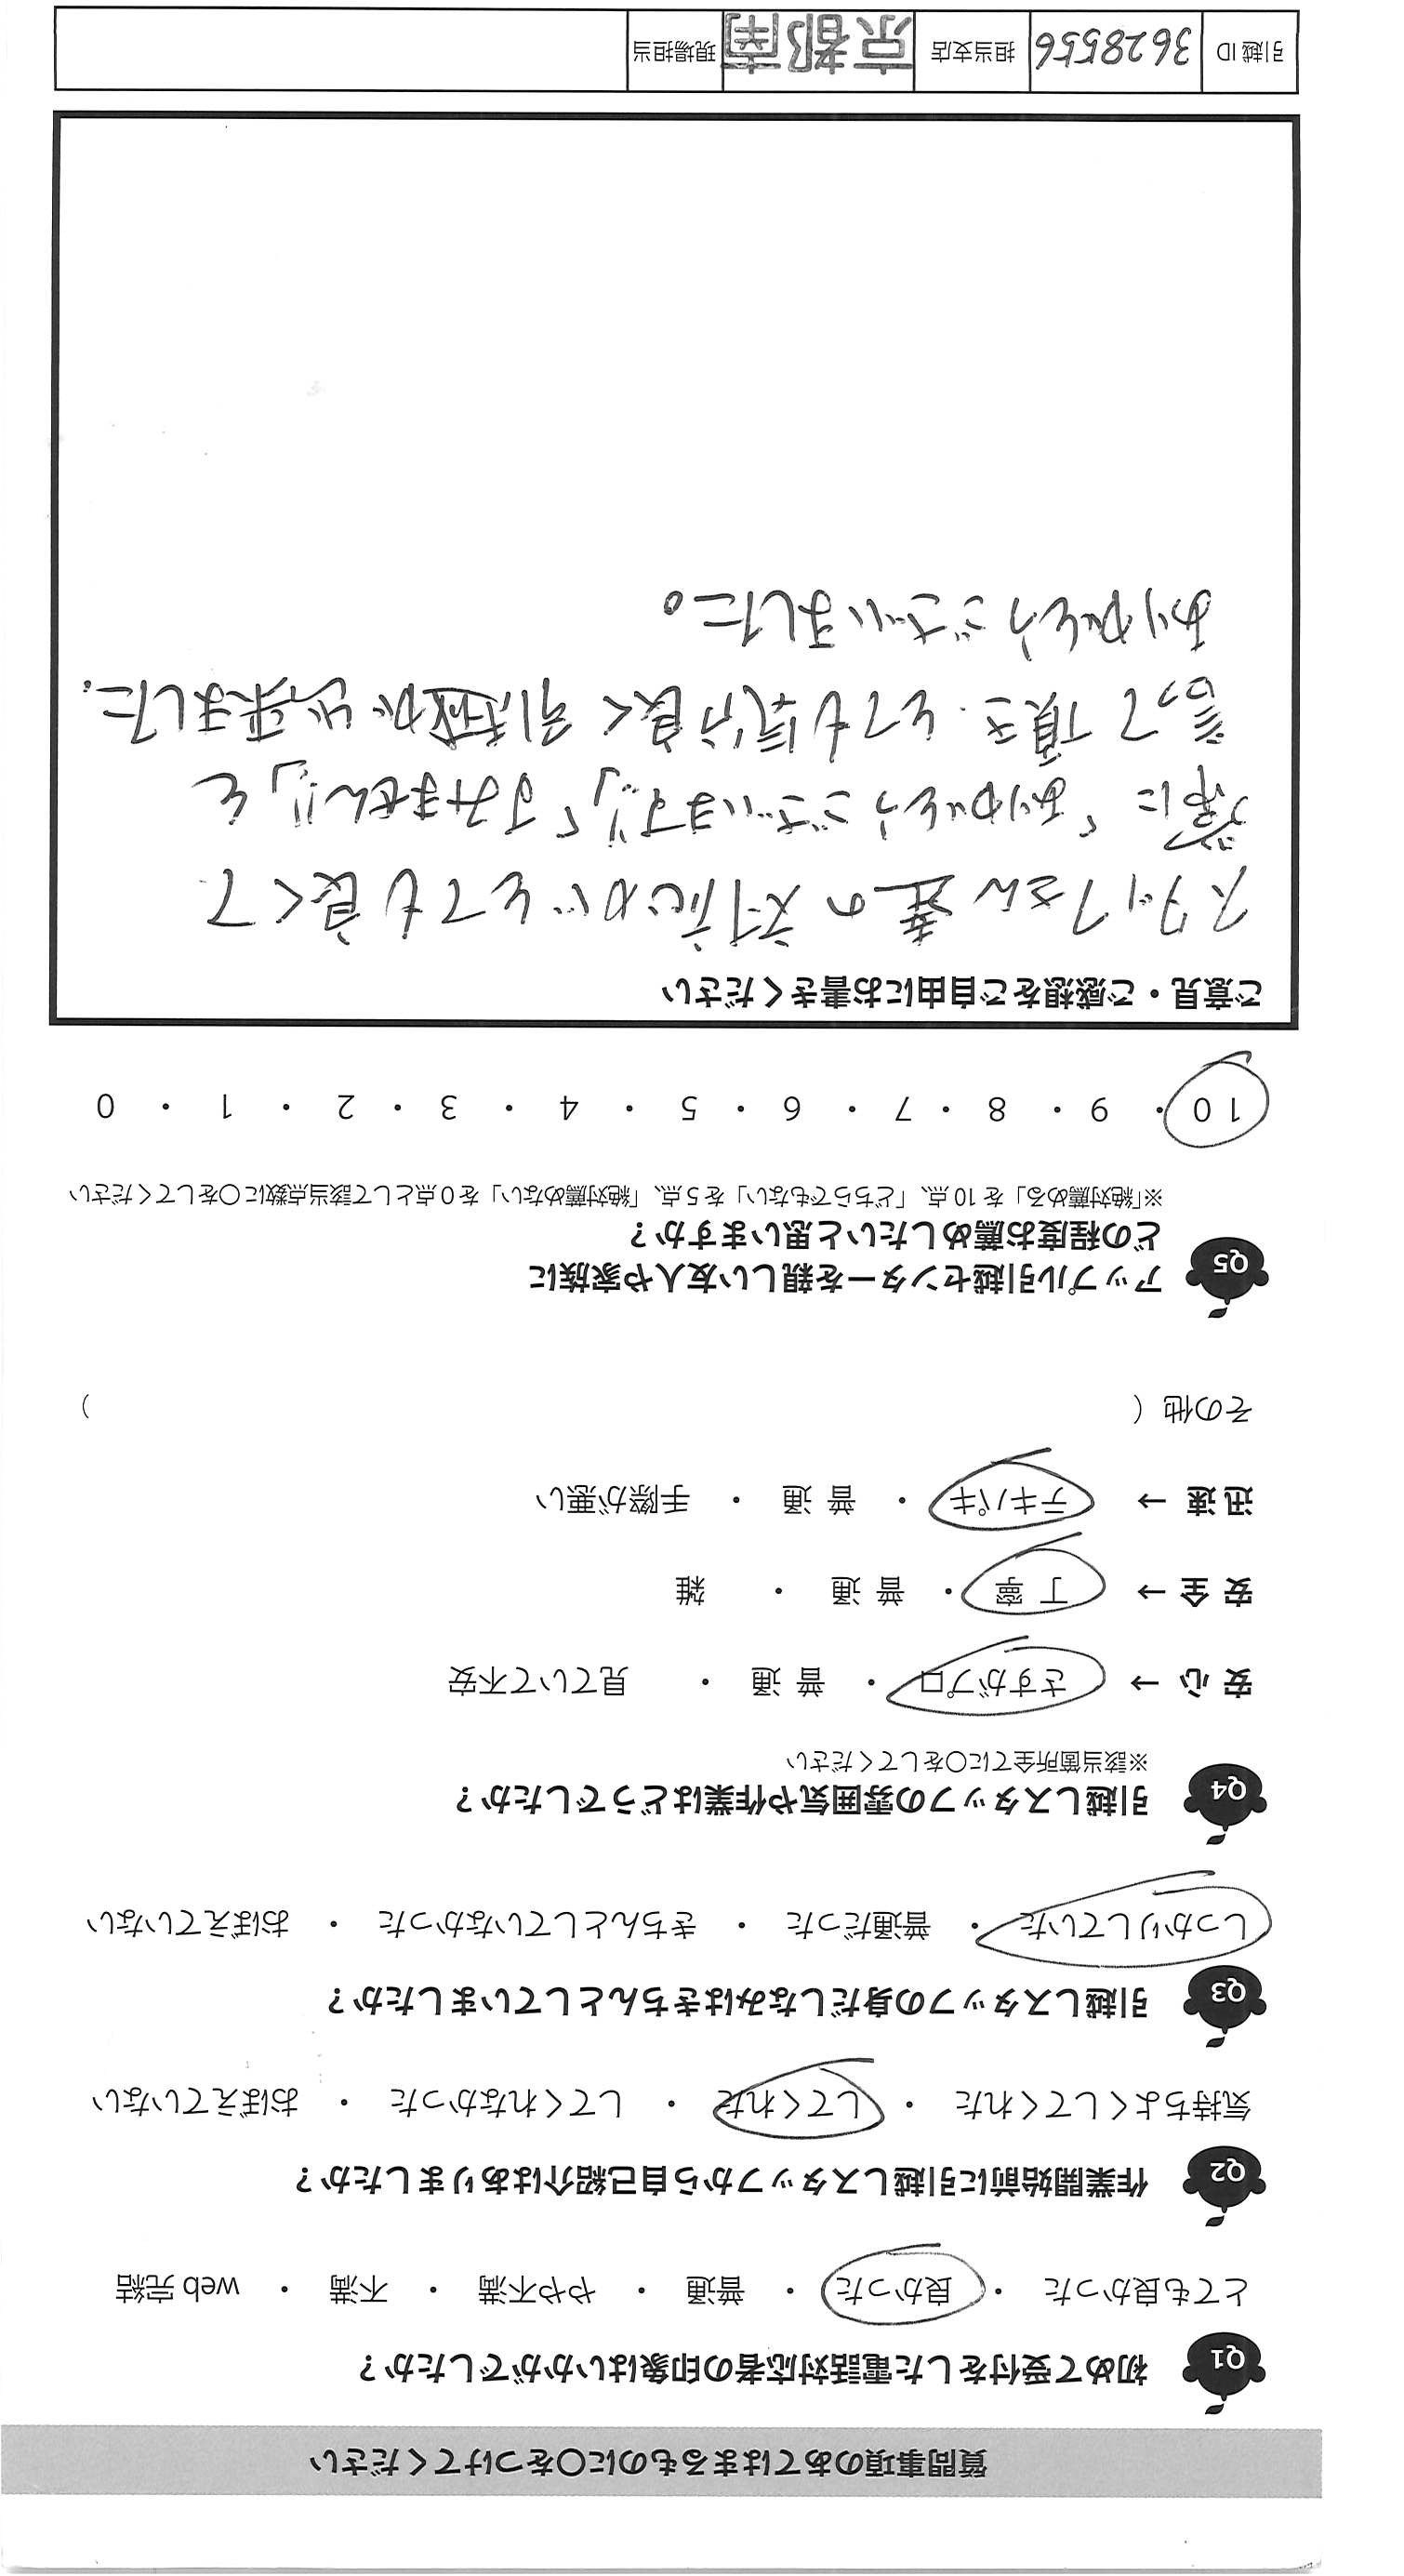 質問事項のあてはまるものに〇をつけてください
Q1 初めて受付をした電話対応者の印象はいかがでしたか？
とても良かった ・ 良かった ・ 普通 ・ やや不満 ・ 不満 ・ web 完結
Q2 作業開始前に引越しスタッフから自己紹介はありましたか？
気持ちよくしてくれた ・ してくれた ・ してくれなかった ・ おぼえていない
Q3 引越しスタッフの身だしなみはきちんとしていましたか？
しっかりしていた ・ 普通だった ・ きちんとしていなかった ・ おぼえていない
Q4 引越しスタッフの雰囲気や作業はどうでしたか？
※該当箇所全てに〇をしてください
安心 → さすがプロ ・ 普通 ・ 見ていて不安
安全 → 丁寧 ・ 普通 ・ 雑
迅速 → テキパキ ・ 普通 ・ 手際が悪い
その他 （ ）
Q5 アップル引越センターを親しい友人や家族に
どの程度お薦めしたいと思いますか？
※「絶対薦める」を 10 点、「どちらでもない」を 5 点、「絶対薦めない」を 0 点として該当点数に〇をしてください
10 ・ 9 ・ 8 ・ 7 ・ 6 ・ 5 ・ 4 ・ 3 ・ 2 ・ 1 ・ 0
ご意見・ご感想をご自由にお書きください
スタッフさん達の対応がとても良くて
常に「ありがとうございます!!」「すみません!!」と
言って頂き、とても気分良く引越が出来ました.
ありがとうございました。
引越 ID 3628556 担当支店 京都南 現場担当